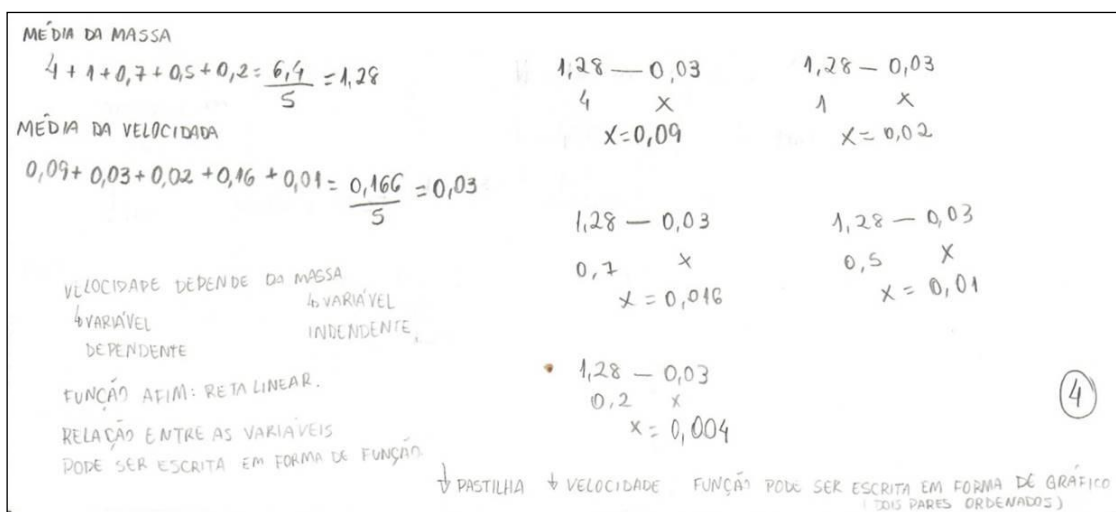 MÉDIA DA MASSA
4 + 1 + 0,7 + 0,5 + 0,2 = 6,4 / 5 = 1,28
MÉDIA DA VELOCIDADA
0,09 + 0,03 + 0,02 + 0,16 + 0,01 = 0,166 / 5 = 0,03
VELOCIDADE DEPENDE DA MASSA
↳ VARIÁVEL DEPENDENTE
↳ VARIÁVEL INDENDENTE,
FUNÇÃO AFIM: RETA LINEAR.
RELAÇÃO ENTRE AS VARIÁVEIS
PODE SER ESCRITA EM FORMA DE FUNÇÃO
1,28 — 0,03
4 x
x = 0,09
1,28 — 0,03
1 x
x = 0,02
1,28 — 0,03
0,7 x
x = 0,016
1,28 — 0,03
0,5 x
x = 0,01
1,28 — 0,03
0,2 x
x = 0,004
4
↓ PASTILHA ↓ VELOCIDADE FUNÇÃO PODE SER ESCRITA EM FORMA DE GRÁFICO
(DOIS PARES ORDENADOS)